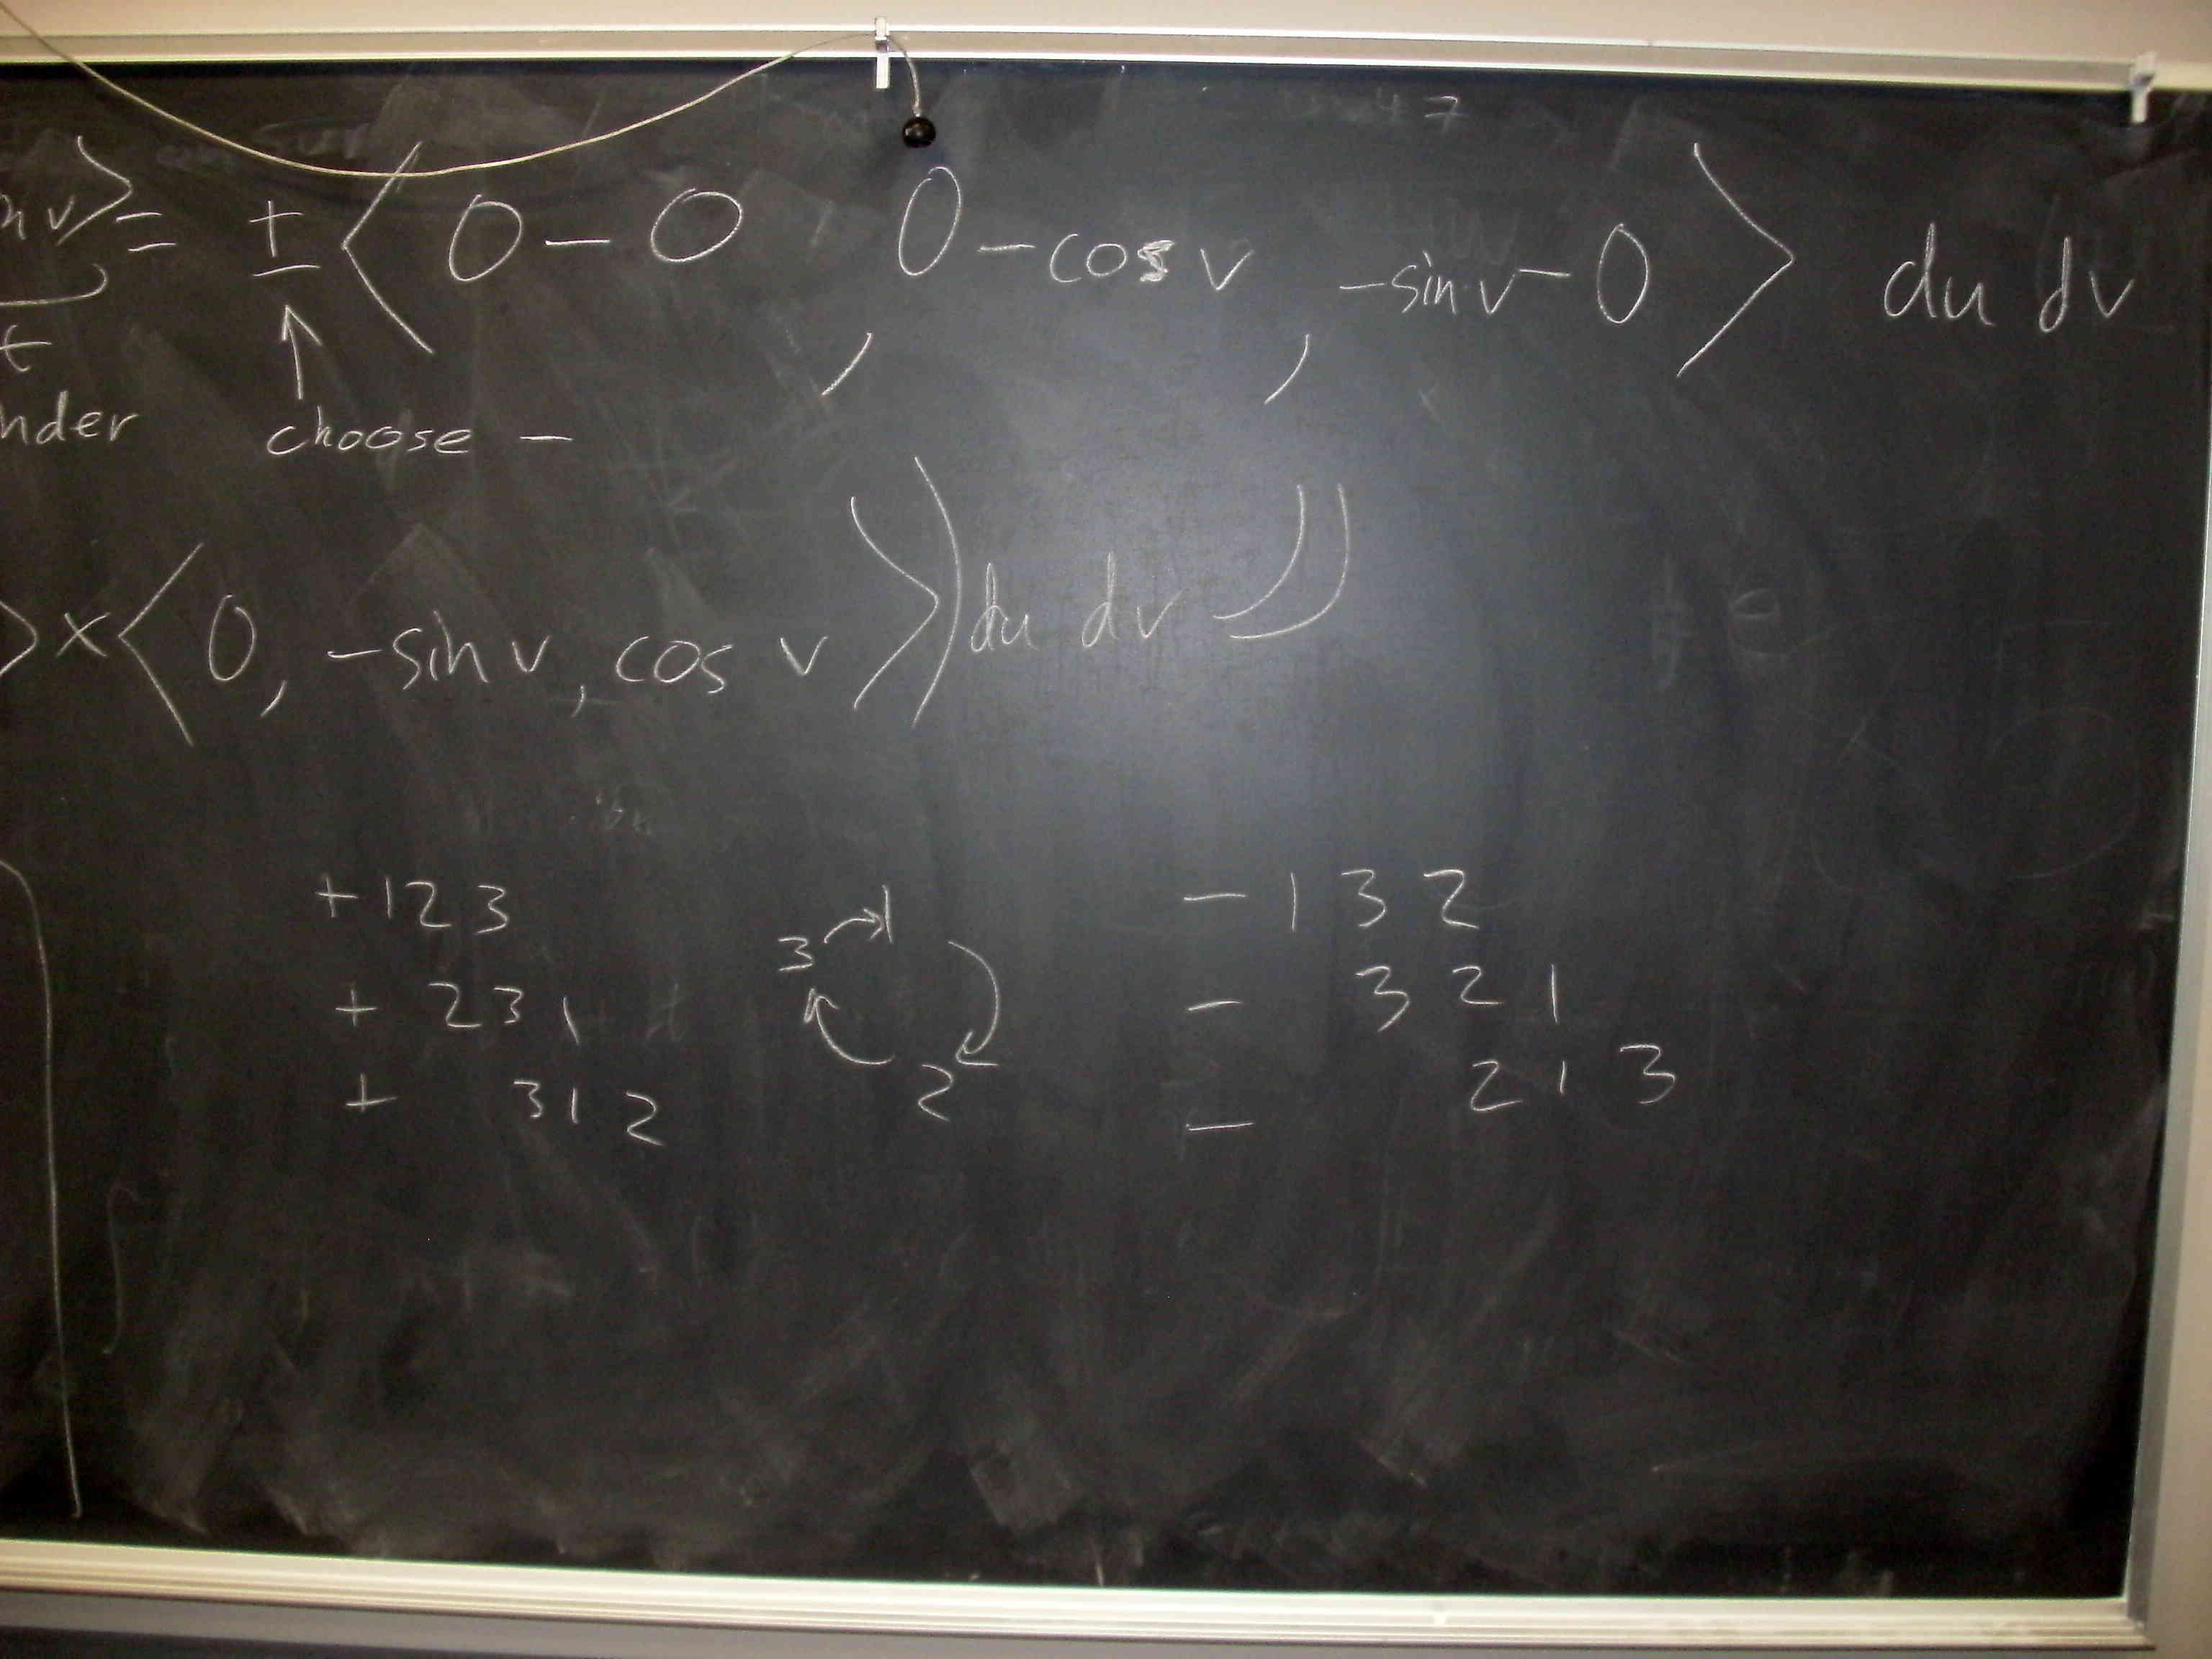 n v⟩ = ± ⟨ 0 - 0 , 0 - cos v , -sin v - 0 ⟩ du dv
↑
nder choose -
⟩ × ⟨ 0, -sin v, cos v ⟩) du dv
+123 1 - 132
3
+ 231 - 321
+ 312 2 - 213